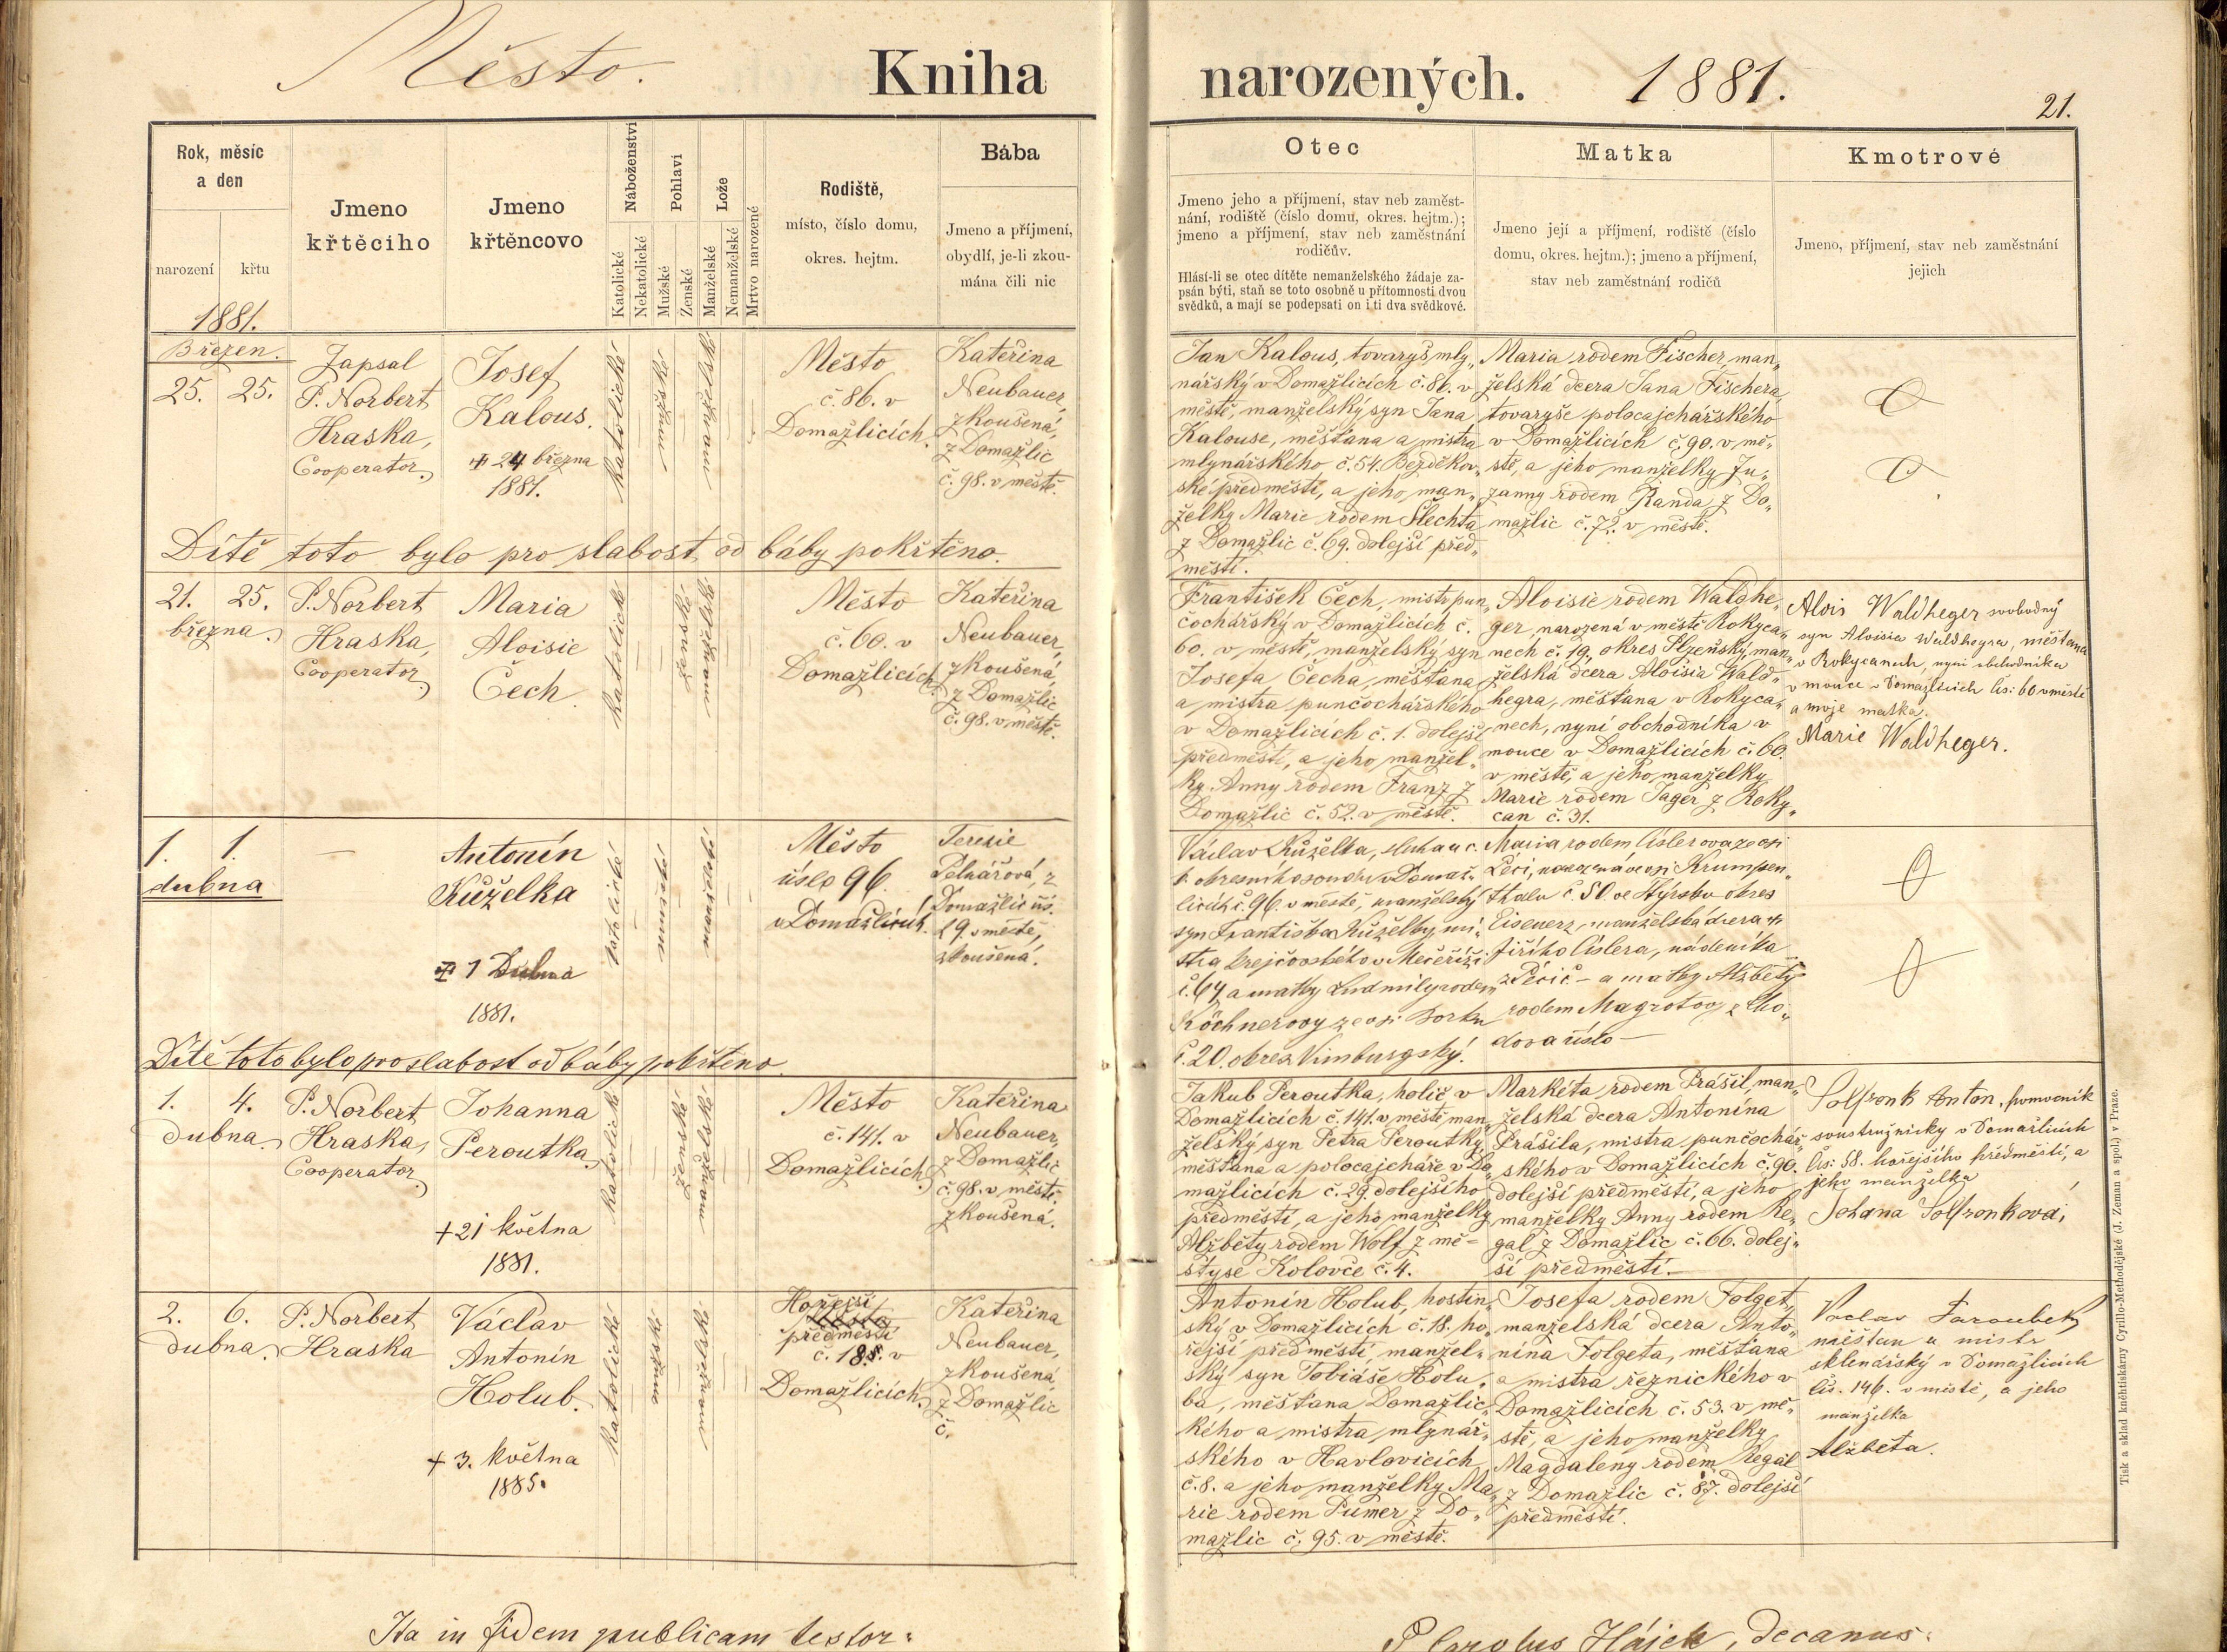 Město.
Kniha
narozených.
1881.
21.
Rok, měsíc
a den
narození
křtu
1881.
Jmeno
křtěcího
Jmeno
křtěncovo
Náboženství
Katolické
Nekatolické
Pohlaví
Mužské
Ženské
Lože
Manželské
Nemanželské
Mrtvo narozené
Rodiště,
místo, číslo domu,
okres. hejtm.
Bába
Jmeno a příjmení,
obydlí, je-li zkou-
mána čili nic
Otec
Jmeno jeho a příjmení, stav neb zaměst-
nání, rodiště (číslo domu, okres. hejtm.);
jmeno a příjmení, stav neb zaměstnání
rodičův.
Hlásí-li se otec dítěte nemanželského žádaje za-
psán býti, staň se toto osobně u přítomnosti dvou
svědků, a mají se podepsati on i ti dva svědkové.
Matka
Jmeno její a příjmení, rodiště (číslo
domu, okres. hejtm.); jmeno a příjmení,
stav neb zaměstnání rodičů
Kmotrové
Jmeno, příjmení, stav neb zaměstnání
jejich
Březen.
25. 25.
Zapsal
P. Norbert
Hraska,
Cooperator.
Josef
Kalous.
+ 24 března
1881.
Katolické
Mužské
Manželské
Město
č. 86. v
Domažlicích.
Kateřina
Neubauer,
zkoušená,
z Domažlic
č. 98. v městě.
Jan Kalous, tovaryš mly„
nářský v Domažlicích č. 86. v
městě, manželský syn Jana
Kalouse, měšťana a mistra
mlynářského, č. 54. Bezděkov„
ské předměstí, a jeho man„
želky Marie rodem Šlechta
z Domažlic č. 69. dolejší před„
městí.
Maria rodem Fischer, man„
želská dcera Jana Fischera,
tovaryše polocajchářského
v Domažlicích č. 90. v mě„
stě, a jeho manželky Zu„
zanny rodem Randa z Do„
mažlic č. 72. v městě.
Dítě toto bylo pro slabost od báby pokřtěno.
21. 25.
března.
P. Norbert
Hraska,
Cooperator
Maria
Aloisie
Čech.
Katolické
Ženské
Manželské
Město
č. 60. v
Domažlicích.
Kateřina
Neubauer,
zkoušená,
z Domažlic
č. 98. v městě.
František Čech, mistr pun„
čochářský v Domažlicích č.
60. v městě, manželský syn
Josefa Čecha, měšťana
a mistra punčochářského
v Domažlicích č. 1. dolejší
předměstí, a jeho manžel„
ky Anny rodem Franz z
Domažlic č. 52. v městě.
Aloisie rodem Waldhe„
ger, narozená v městě Rokyca„
nech č. 19, okres Plzeňský, man„
želská dcera Aloisia Wald„
hegra, měšťana v Rokyca„
nech, nyní obchodníka v
mouce v Domažlicích č. 60.
v městě, a jeho manželky
Marie rodem Jager z Roky„
can č. 31.
Alois Waldheger svobodný
syn Aloisia Waldhegra, měšťana
v Rokycanech, nyní obchodníka
v mouce v Domažlicích čís: 60 v městě
a moje matka.
Marie Waldheger.
1. 1.
dubna
—
Antonín
Kůželka
+ 1 Dubna
1881.
Katolické
mužské
manželské
Město
číslo 96.
v Domažlicích.
Terezie
Pekářová, z
Domažlic čís.
29. v městě,
zkoušená.
Václav Kůželka, sluha u c.
k. okresního soudu v Domaž„
licích č. 96. v městě, manželský
syn Františka Kůželky, mi„
stra krejčovského v Mečeříži
č. 64, a matky Ludmily rodem
Köchnerovy ze vsi
č. 20. okres Nimburgský.
Maria rodem Cislerova ze vsi
narozená ve vsi Krumpen„
thalu č. 50. ve Štýrsku okres
Eisenerz, manželská dcera +
Jiřího Cislera, nádeníka
a matky Alžběty
rodem Magrotovy
číslo —
Dítě toto bylo pro slabost od báby pokřtěno.
1. 4.
dubna.
P. Norbert
Hraska,
Cooperator
Johanna
Peroutka.
+ 21 května
1881.
Katolické
Ženské
Manželské
Město
č. 141. v
Domažlicích.
Kateřina
Neubauer,
z Domažlic
č. 98. v městě.
zkoušená.
Jakub Peroutka, holič v
Domažlicích č. 141. v městě man„
želský syn Petra Peroutky,
měšťana a polocajcháře v Do„
mažlicích č. 29. dolejšího
předměstí, a jeho manželky
Alžběty rodem Wolf z mě-
styse Kolovče č. 4.
Markéta rodem Prášil, man„
želská dcera Antonína
Prášila, mistra punčochář„
ského v Domažlicích č. 90.
dolejší předměstí, a jeho
manželky Anny rodem Re„
gal z Domažlic č. 66. dolej„
ší předměstí.—
Anton, pomocník
soustružnický v Domažlicích
čís: 58. hořejšího předměstí, a
jeho manželka
Johana
2. 6.
dubna.
P. Norbert
Hraska
Václav
Antonín
Holub.
+ 3. května
1885.
Katolické
Mužské
Manželské
Hořejší
předměstí
č. 18. v
Domažlicích.
Kateřina
Neubauer,
zkoušená
z Domažlic
č.
Antonín Holub, hostin„
ský v Domažlicích č. 18. ho„
řejší předměstí, manžel„
ský syn Tobiáše Holu„
ba, měšťana Domažlic„
kého a mistra mlynář„
ského v Havlovicích
č. 8. a jeho manželky Ma„
rie rodem Pumer z Do„
mažlic č. 95. v městě.
Josefa rodem Folget,
manželská dcera Anto„
nína Folgeta, měšťana
a mistra řeznického v
Domažlicích č. 53. v mě„
stě, a jeho manželky
Magdaleny rodem Regal
z Domažlic č. 87. dolejší
předměstí.
Václav Faroubek,
měšťan a mistr
sklenářský v Domažlicích
čís. 146. v městě, a jeho
manželka
Alžběta.
Ita in fidem publicam testor:
P Carolus Hájek, decanus.
Tisk a sklad knihtiskárny Cyrillo-Methodějské (J. Zeman a spol.) v Praze.